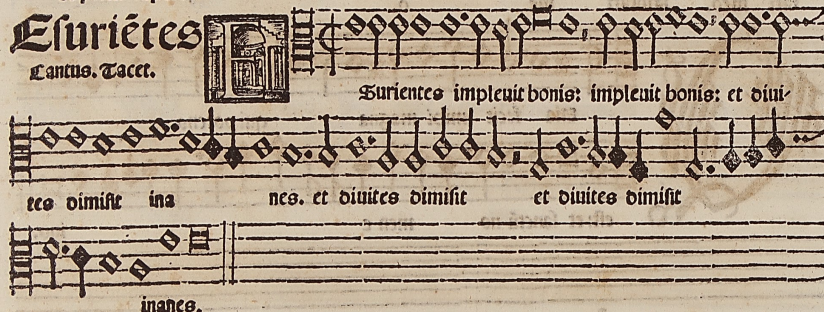 Esuriẽtes
Cantus. Tacet.
E Surientes impleuit bonis: impleuit bonis: et diui-
tes dimisit ina nes. et diuites dimisit et diuites dimisit
inanes.